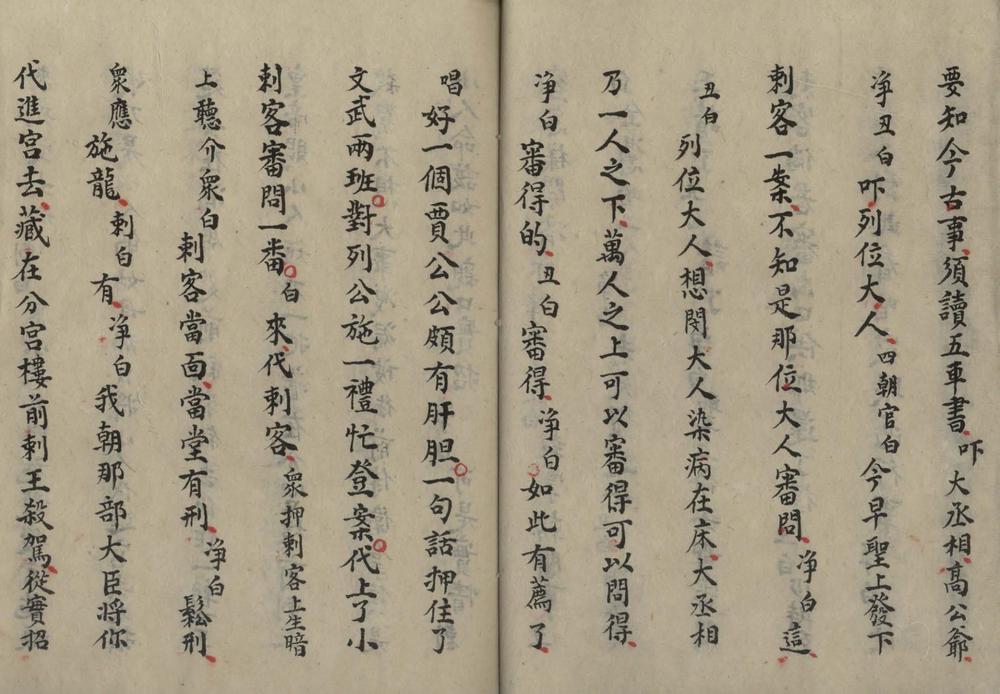 要知今古事須讀五車書吓大丞相高公爺
净丑白吓列位大人四朝官白今早聖上發下
刺客一案不知是那位大人審問净白這
丑白列位大人想閔大人染病在床大丞相
乃一人之下萬人之上可以審得可以問得
净白審得的丑白審得净白如此有薦了
唱好一個賈公公頗有肝胆一句話押住了
文武兩班對列公施一禮忙登案代上了小
刺客審問一番白來代刺客衆押刺客上生暗
上聽介衆白刺客當面當堂有刑净白鬆刑
衆應施龍刺白有净白我朝那部大臣將你
代進宮去藏在分宮樓前刺王殺駕從實招